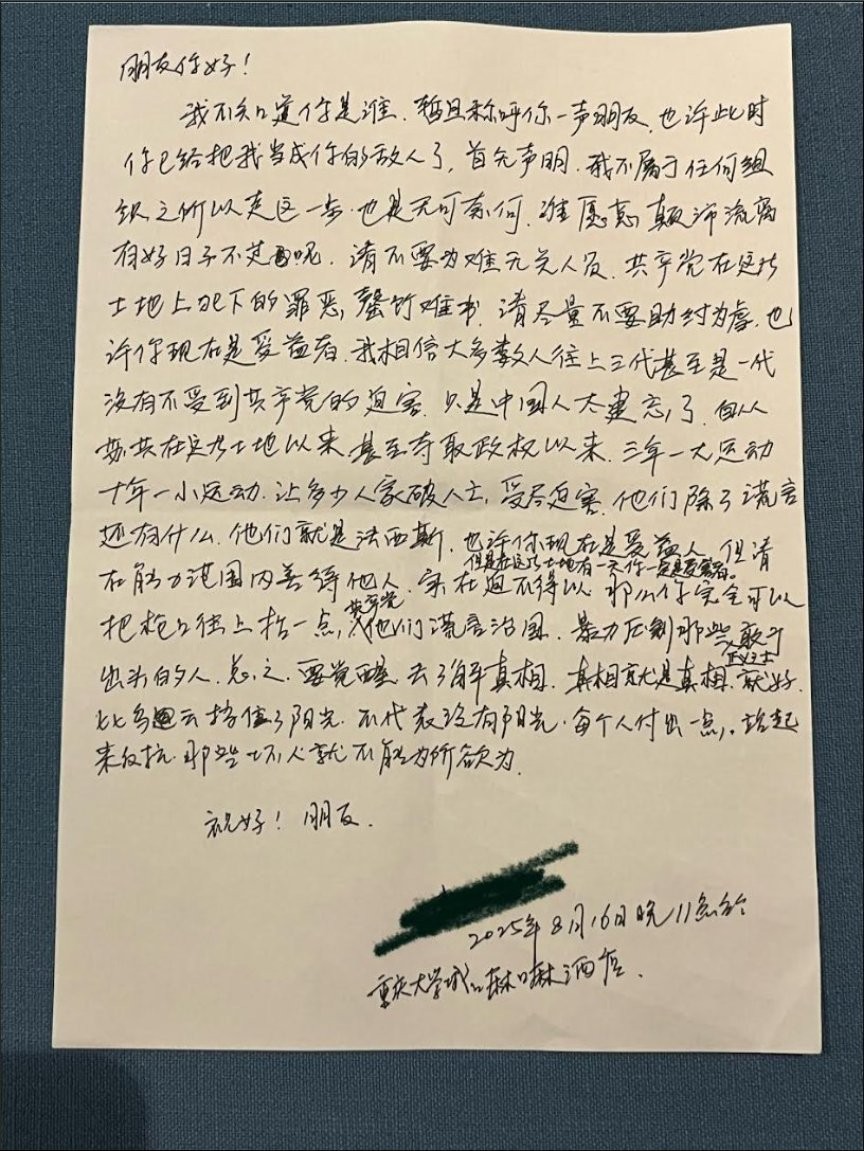 朋友你好！
我不知道你是谁.暂且称呼你一声朋友.也许此时
你已给把我当成你的敌人了.首先声明.我不属于任何组
织之所以走这一步.也是无可奈何.谁愿意颠沛流离
有好日子不过呢.请不要为难无关人员.共产党在这片
土地上犯下的罪恶,罄竹难书.请尽量不要助纣为虐.也
许你现在是受益者.我相信大多数人往上三代甚至是一代
没有不受到共产党的迫害.只是中国人太健忘了.自从
苏共在这片土地以来.甚至夺取政权以来.三年一大运动
十年一小运动.让多少人家破人亡,受尽迫害.他们除了谎言
还有什么.他们就是法西斯.也许你现在是受益人.但请
但是在这片土地有一天你一定是受害者。
在能力范围内善待他人.实在迫不得以.那么你完全可以
共产党
把枪口往上抬一点,他们谎言治国.暴力压制那些敢于
正义之士
出头的人.总之.要觉醒.去了解真相.真相就是真相.就好
比乌云挡住了阳光.不代表没有阳光.每个人付出一点,.站起
来反抗.那些坏人就不能为所欲为.
祝好！朋友.
2025年8月16日晚11点
重庆大学城 酒店.